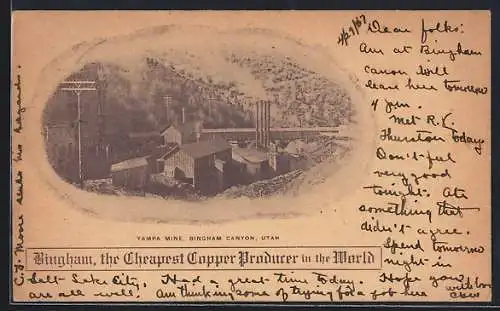 4/29/07
Dear folks:
Am at Bingham
canon will
leave here tomorrow
4 p.m.
Met R.K.
Thurston today
Don't feel
very good
tonight. Ate
something that
didn't agree.
Spend tomorrow
night in
Salt Lake City. Had a great time today. Hope you
are all well. Am thinking some of trying for a job here
C.J. Moore sends his regards.
YAMPA MINE, BINGHAM CANYON, UTAH
Bingham, the Cheapest Copper Producer in the World